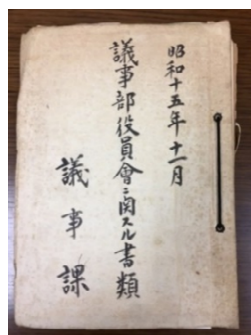 昭和十五年十一月
議事部役員會ニ関スル書類
議事課